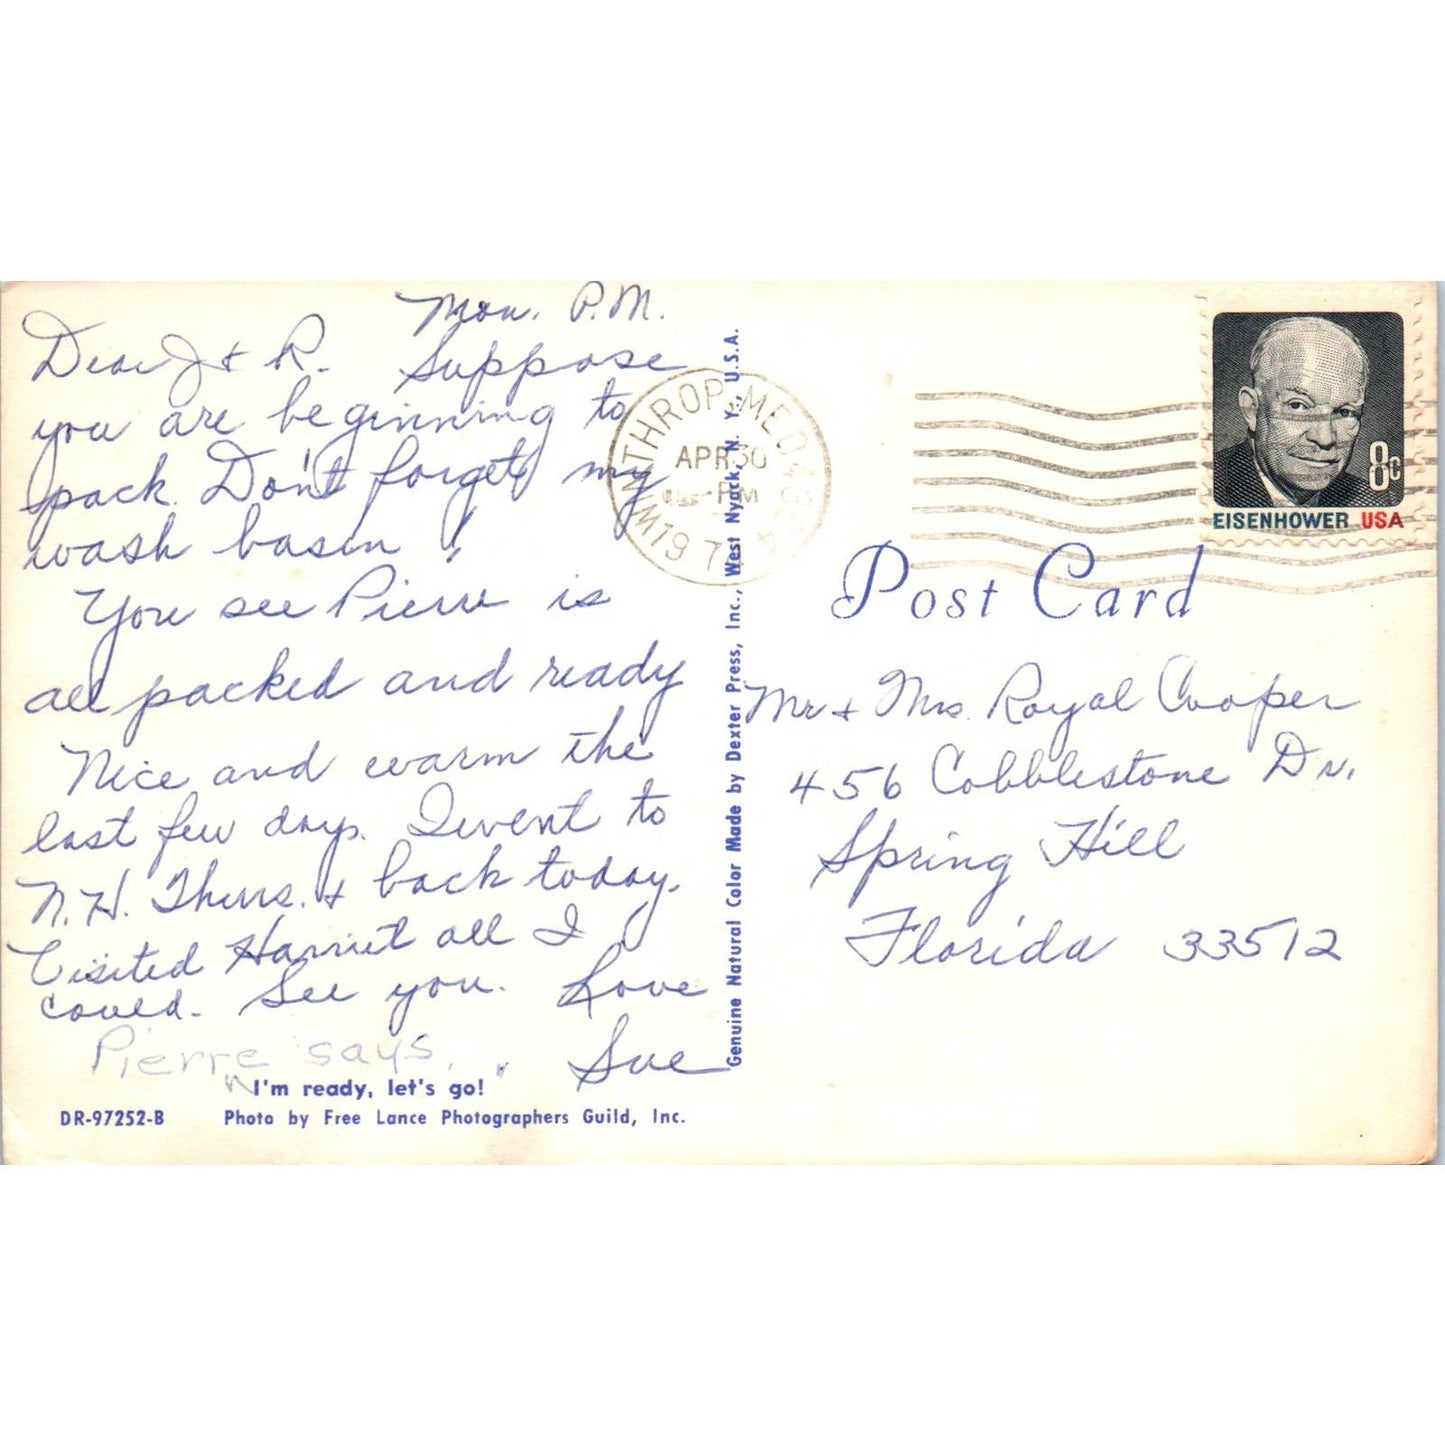 Mon. P.M.
Dear J + R. Suppose
you are beginning to
pack. Don't forget my
wash basin!
You see Pierre is
all packed and ready
Nice and warm the
last few days. I went to
N.H. Thurs. + back today.
Visited Harriet all I
could. See you. Love
Sue
Pierre says,
"I'm ready, let's go!"
DR-97252-B Photo by Free Lance Photographers Guild, Inc.
Genuine Natural Color Made by Dexter Press, Inc., West Nyack, N. Y., U.S.A.
WINTHROP, ME
APR 30
PM
19
8c
EISENHOWER USA
Post Card
Mr + Mrs. Royal Cooper
456 Cobblestone Dr.
Spring Hill
Florida 33512